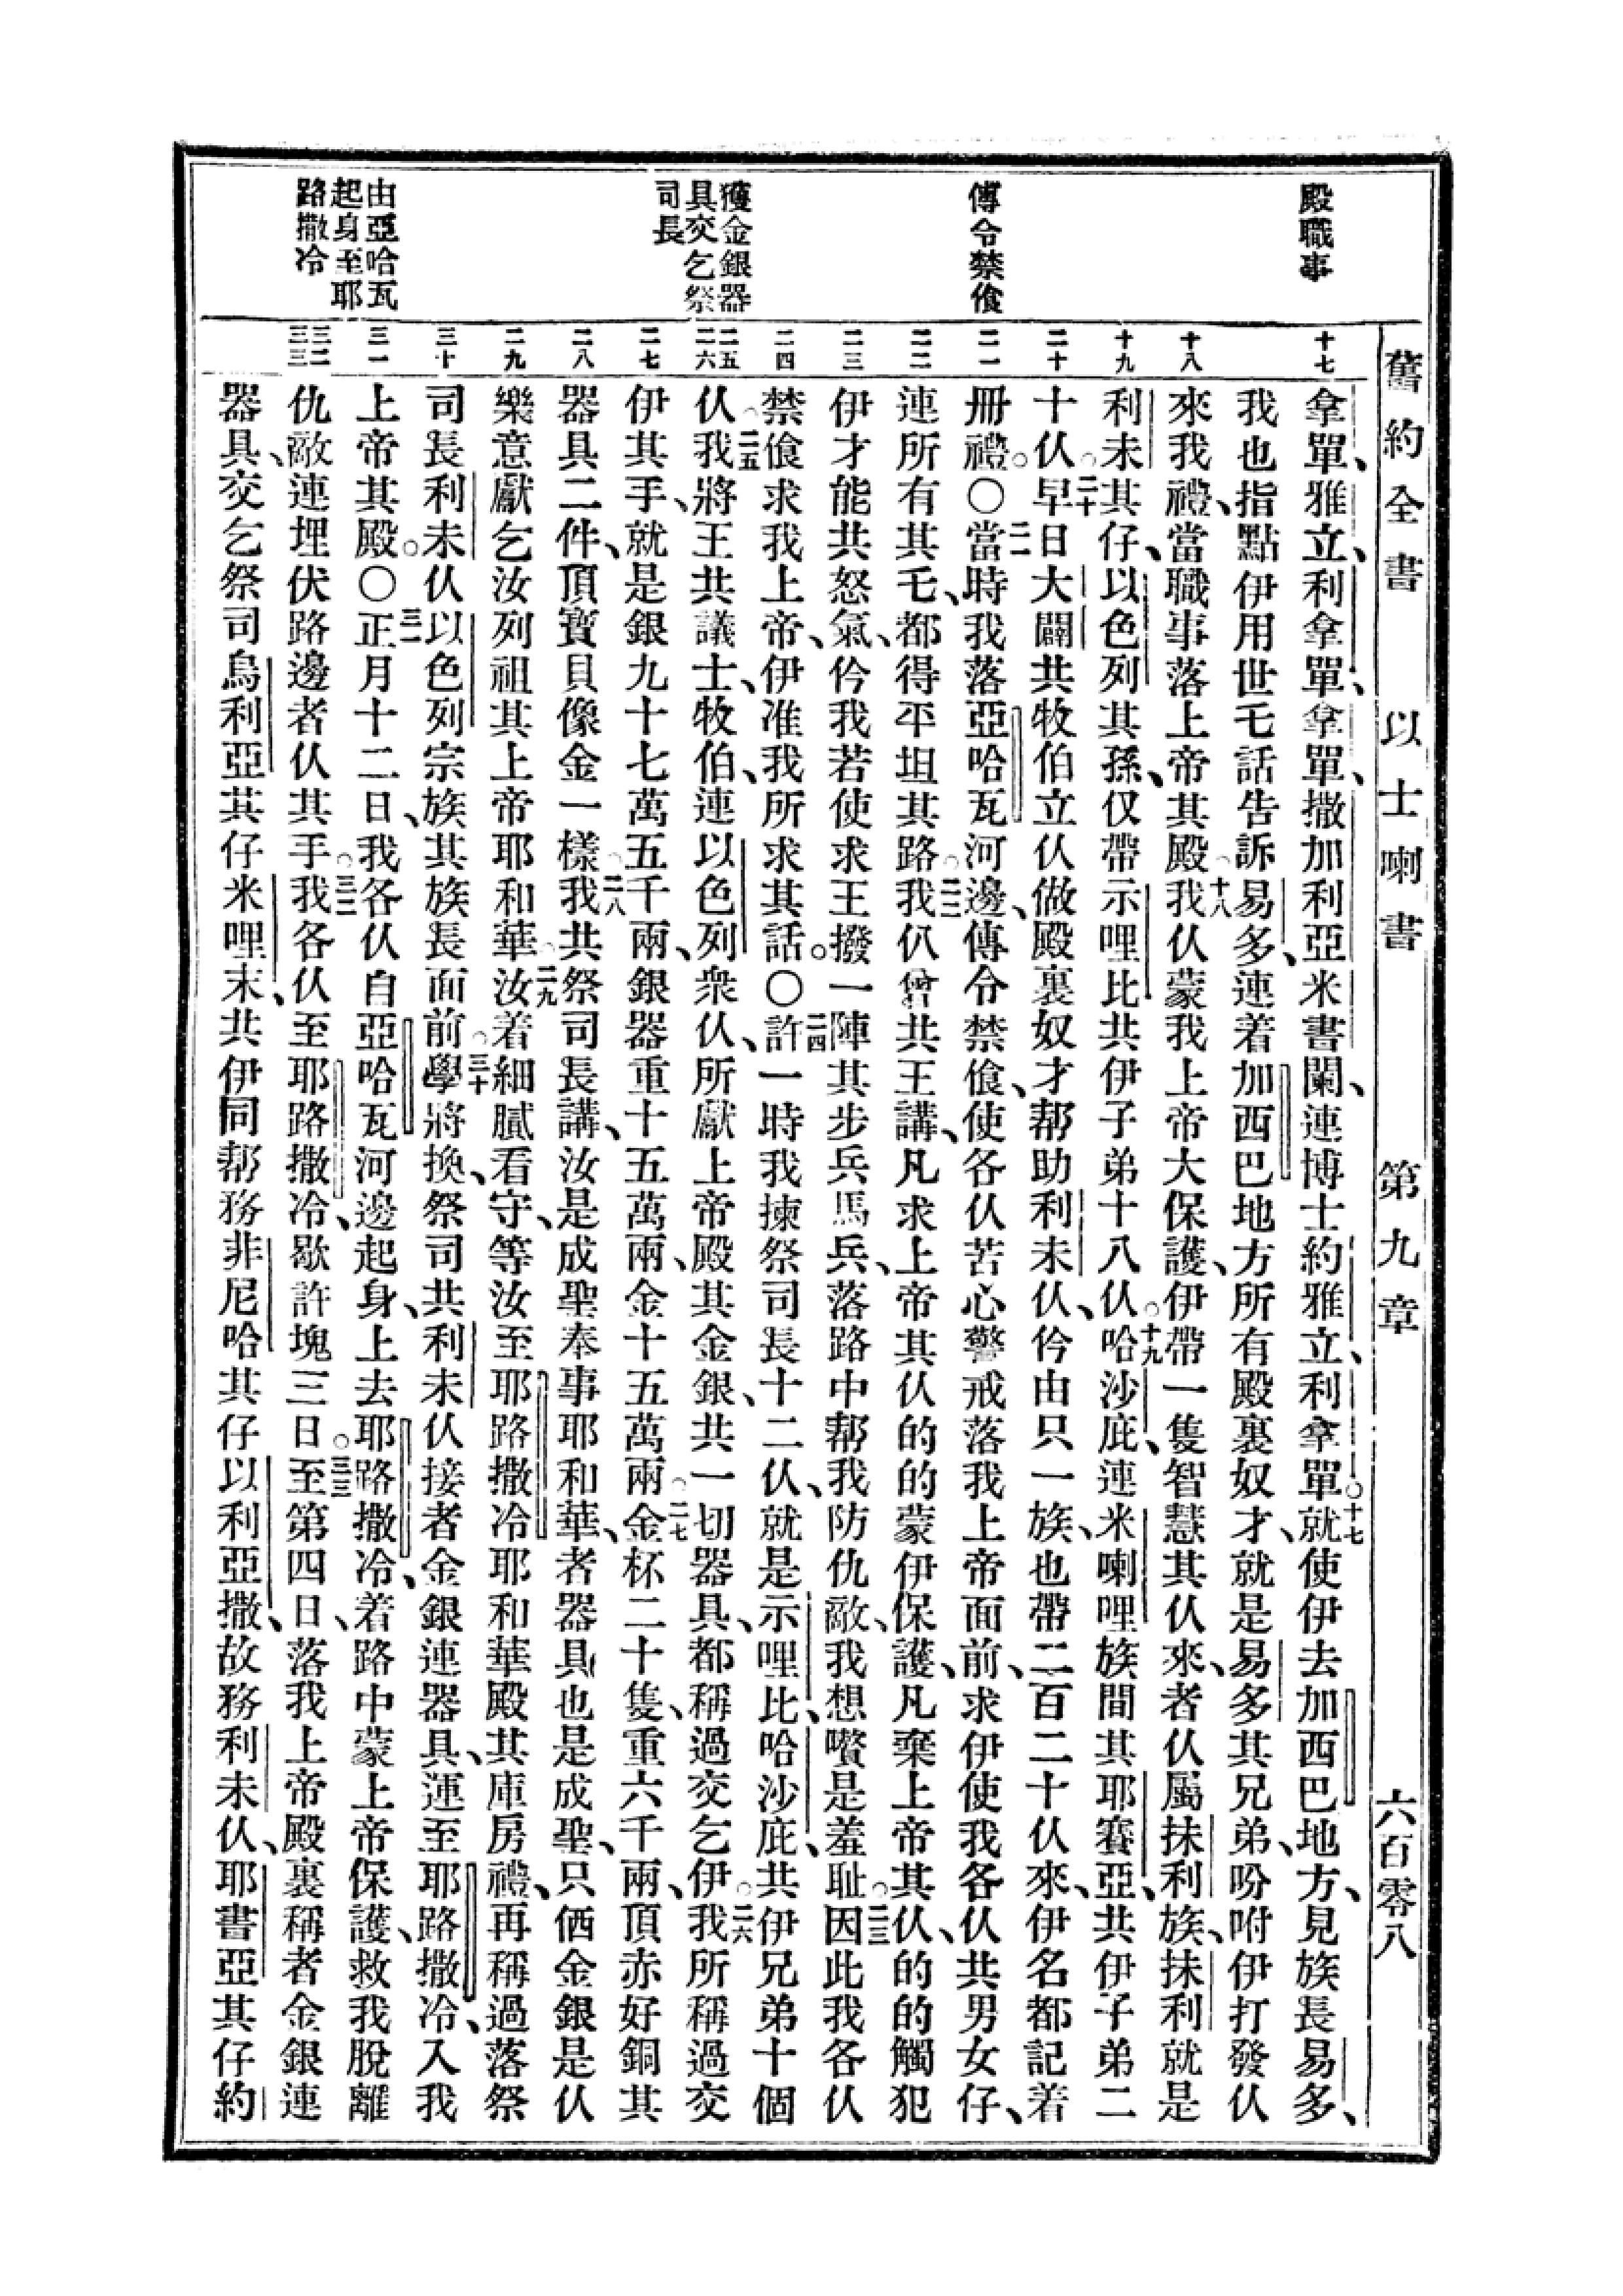 舊約全書　以士喇書　第九章　六百零八
殿職事
傳令禁飡
獲金銀器
具交乞祭
司長
由亞哈瓦
起身至耶
路撒冷
十七
十八
十九
二十
二一
二二
二三
二四
二五
二六
二七
二八
二九
三十
三一
三二
三三
拿單、雅立、利拿單、拿單、撒加利亞米書闌、連博士約雅立、利拿單。十七就使伊去加西巴地方、見族長易多、
我也指點伊用世乇話告訴易多、連着加西巴地方所有殿裏奴才、就是易多其兄弟、吩咐伊打發仈
來我禮、當職事落上帝其殿。十八我仈蒙我上帝大保護、伊帶一隻智慧其仈來、者仈屬抹利族、抹利就是
利未其仔、以色列其孫、仅帶示哩比共伊子弟十八仈。十九哈沙庇、連米喇哩族間其耶賽亞、共伊子弟二
十仈。二十早日大闢共牧伯立仈做殿裏奴才帮助利未仈、仱由只一族、也帶二百二十仈來、伊名都記着
冊禮。〇二一當時我落亞哈瓦河邊、傳令禁飡、使各仈苦心警戒落我上帝面前、求伊使我各仈共男女仔、
連所有其乇、都得平坦其路。二二我仈曾共王講、凡求上帝其仈的的蒙伊保護、凡棄上帝其仈、的的觸犯
伊才能共怒氣、仱我若使求王撥一陣其步兵馬兵、落路中帮我防仇敵、我想嚽是羞耻。二三因此我各仈
禁飡求我上帝、伊准我所求其話。〇二四許一時我揀祭司長十二仈、就是示哩比、哈沙庇、共伊兄弟十個
仈。二五我將王共議士、牧伯、連以色列衆仈、所獻上帝殿其金銀、共一切器具、都稱過交乞伊。二六我所稱過交
伊其手、就是銀九十七萬五千兩、銀器重十五萬兩、金十五萬兩。二七金杯二十隻、重六千兩、頂赤好銅其
器具二件、頂寶貝像金一樣。二八我共祭司長講、汝是成聖奉事耶和華、者器具也是成聖、只俩金銀是仈
樂意獻乞汝列祖其上帝耶和華。二九汝着細膩看守、等汝至耶路撒冷耶和華殿其庫房禮、再稱過落祭
司長利未仈以色列宗族其族長面前。三十學將換、祭司共利未仈接者金銀連器具、運至耶路撒冷、入我
上帝其殿。〇三一正月十二日、我各仈自亞哈瓦河邊起身、上去耶路撒冷、着路中蒙上帝保護、救我脫離
仇敵連埋伏路邊者仈其手。三二我各仈至耶路撒冷、歇許塊三日。三三至第四日、落我上帝殿裏稱者金銀連
器具、交乞祭司烏利亞其仔米哩末、共伊同帮務非尼哈其仔以利亞撒、故務利未仈、耶書亞其仔約